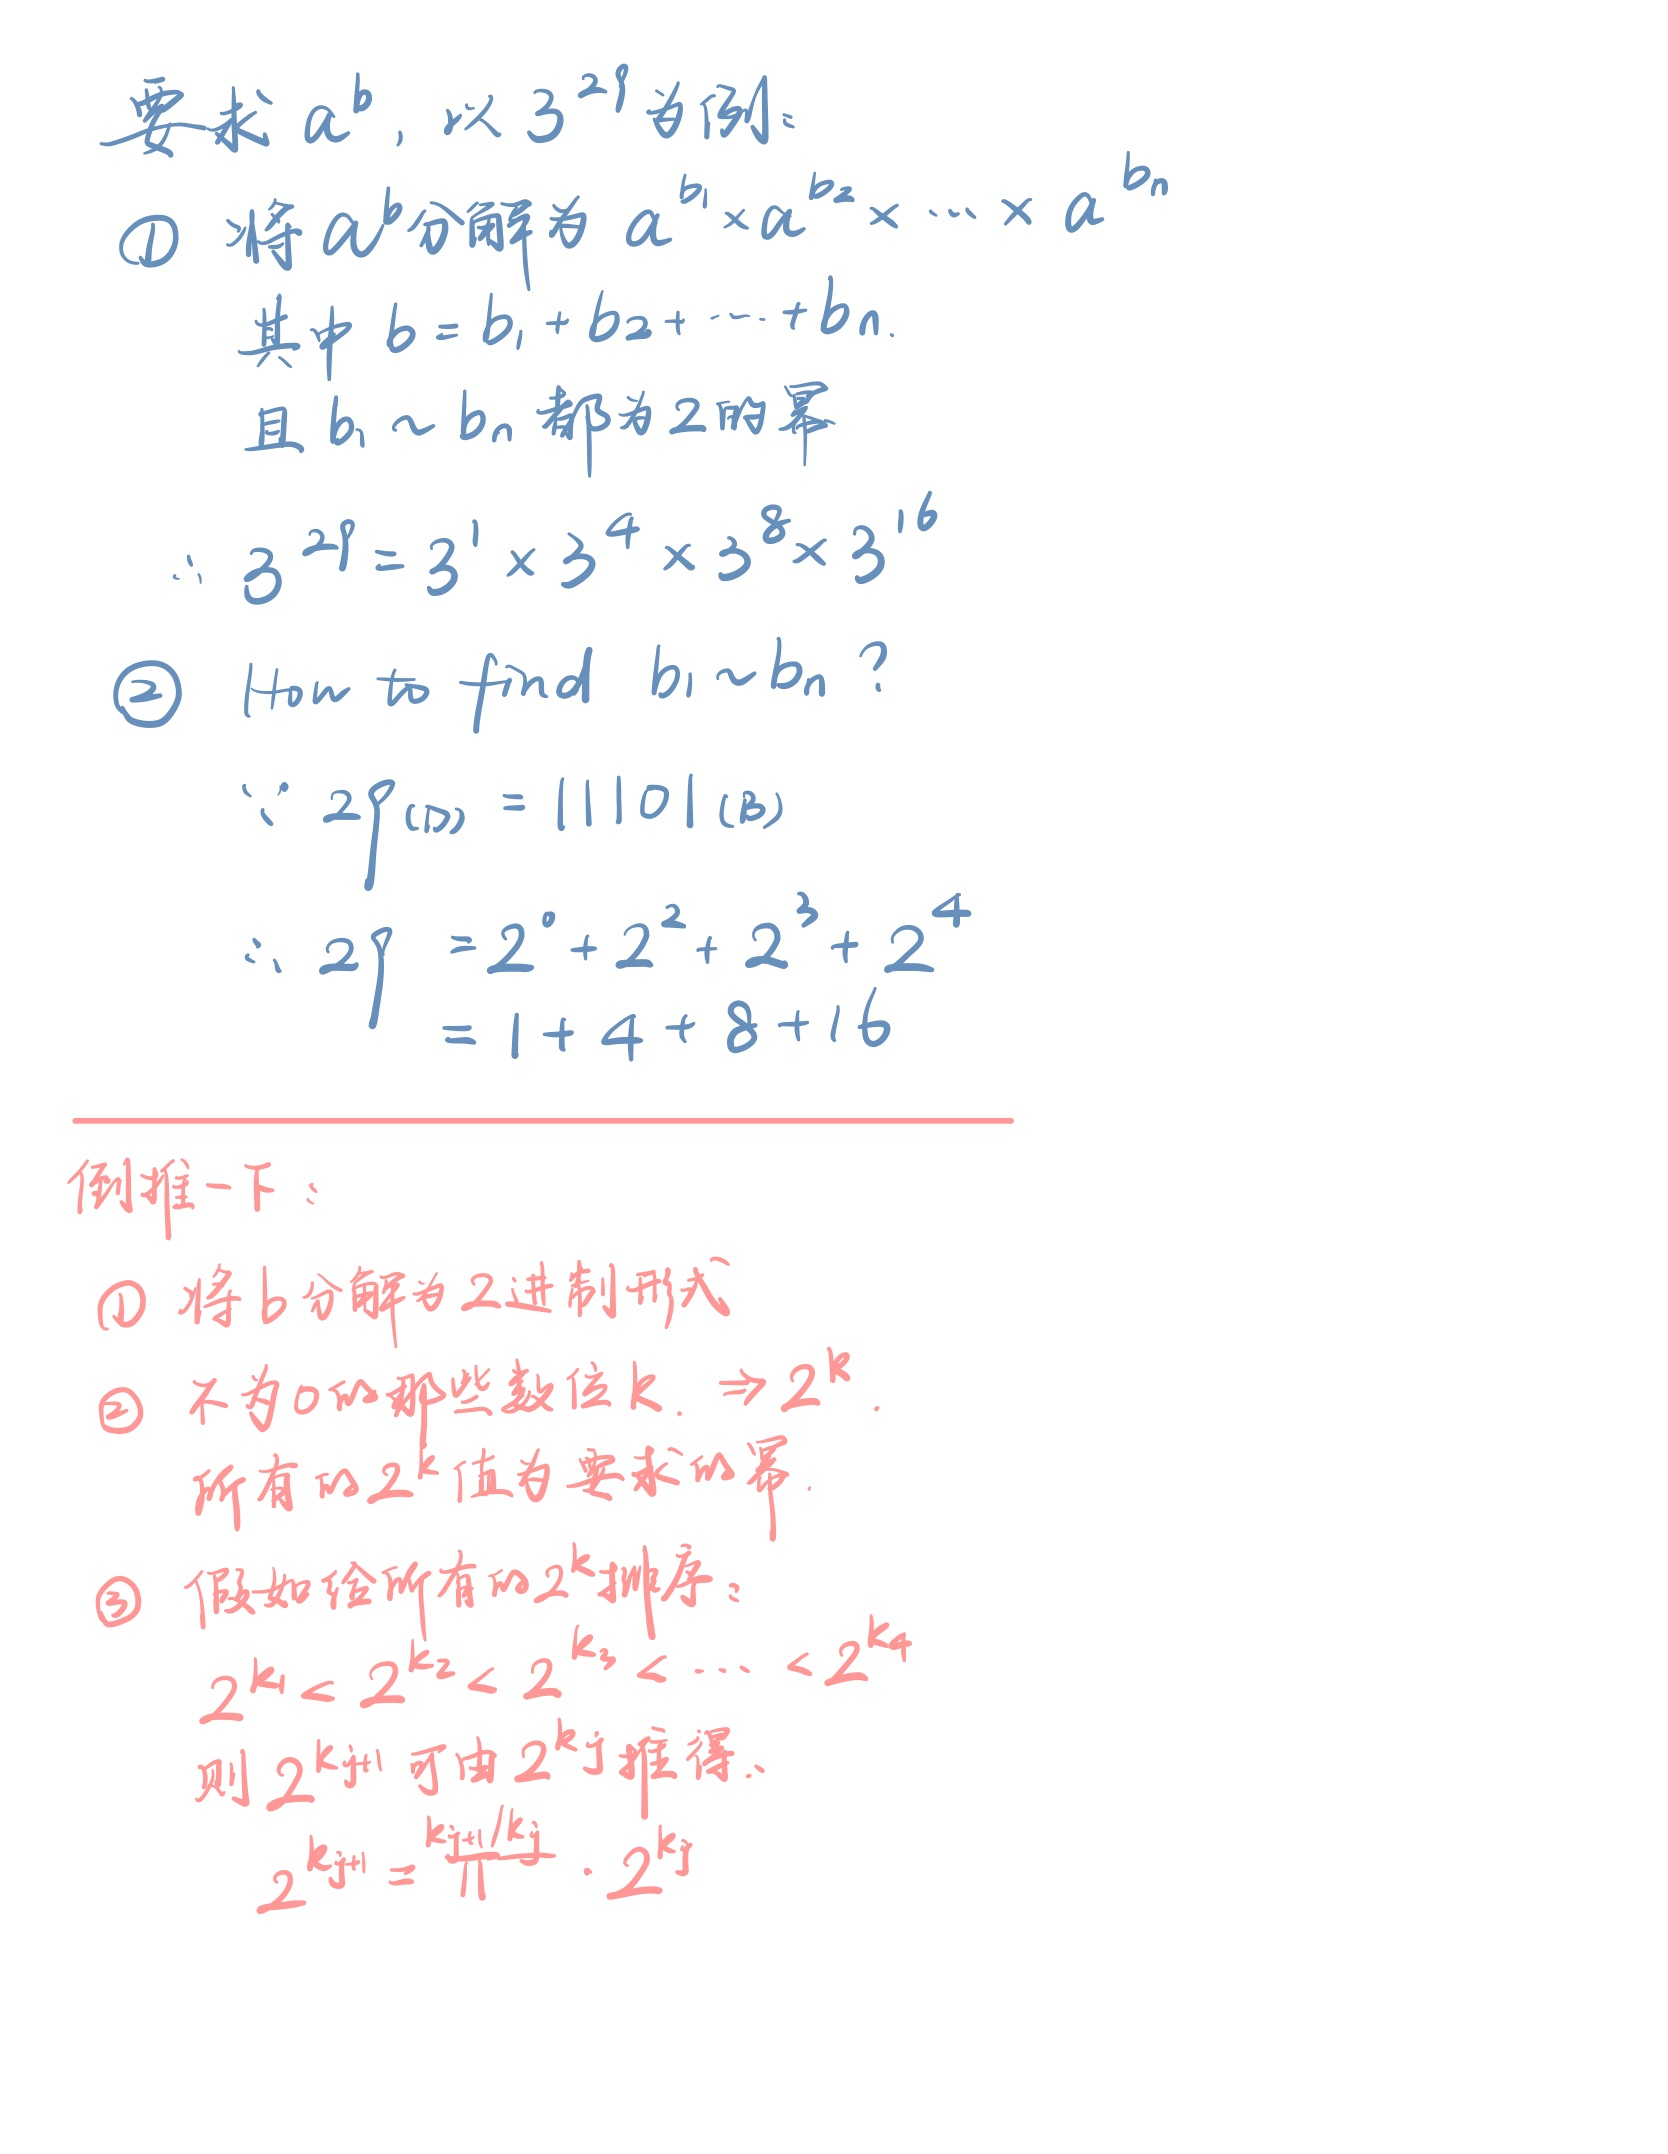 要求 a^b, 以 3^29 为例:
① 将 a^b 分解为 a^b₁ × a^b₂ × ··· × a^bₙ
其中 b = b₁ + b₂ + ··· + bₙ.
且 b₁ ~ bₙ 都为 2 的幂
∴ 3^29 = 3^1 × 3^4 × 3^8 × 3^16
② How to find b₁ ~ bₙ ?
∵ 29(D) = 11101(B)
∴ 29 = 2^0 + 2^2 + 2^3 + 2^4
= 1 + 4 + 8 + 16
倒推一下:
① 将 b 分解为 2 进制形式
② 不为 0 的那些数位 k. ⇒ 2^k.
所有的 2^k 值为要求的幂.
③ 假如给所有的 2^k 排序:
2^k₁ < 2^k₂ < 2^k₃ < ··· < 2^k₄
则 2^kⱼ₊₁ 可由 2^kⱼ 推得:
2^kⱼ₊₁ = ^(kⱼ₊₁/kⱼ)∏ · 2^kⱼ